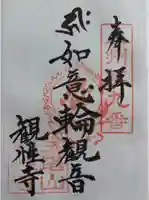 奉拝
如意輪観音
観性寺